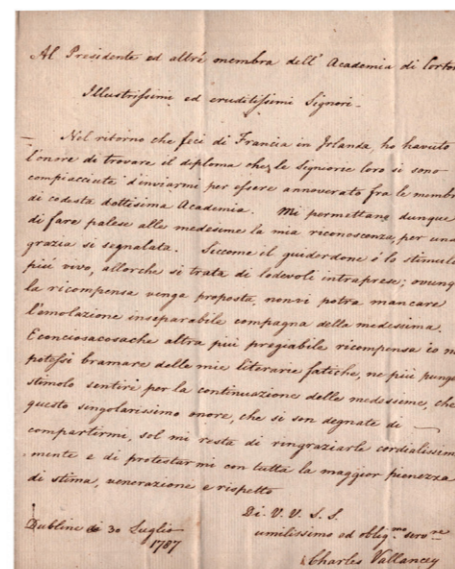 Al Presidente ed altré membra dell' Academia di Corton
Illustrissimi ed eruditissimi Signori.
Nel ritorno che feci di Francia in Irlanda, ho havuto
l'onore di trovare il diploma che le Signorie loro si sono
compiacciute d'inviarmi per essere annoverato fra le membr
di codesta dottisima Academia. Mi permettans dunque
di fare palese alle medesime la mia riconoscenza, per una
grazia si segnalata. Siccome il guiderdone è lo stimulo
piú vivo, allorche si trata di lodevoli intraprese; ovunq
la ricompensa venga proposta, nonvi potra mancare
l'emolazione inseparabile compagna della medesima.
Econciosacosache altra piú pregiabile ricompensa io n
potessi bramare delle mie literarie fatiche, ne piú punge
stimolo sentire per la continuazione delle medesime, che
questo singolarissimo onore, che si son degnate di
compartirmi, sol mi resta di ringraziarle cordialissem
mente e di protestarmi con tutta la maggior pienezza
di stima, venerazione e rispetto
Di. V. V. S. S.
Dubline di 30 Luglio
umilissimo ed oblig.mo servo.re
1787
Charles Vallancey